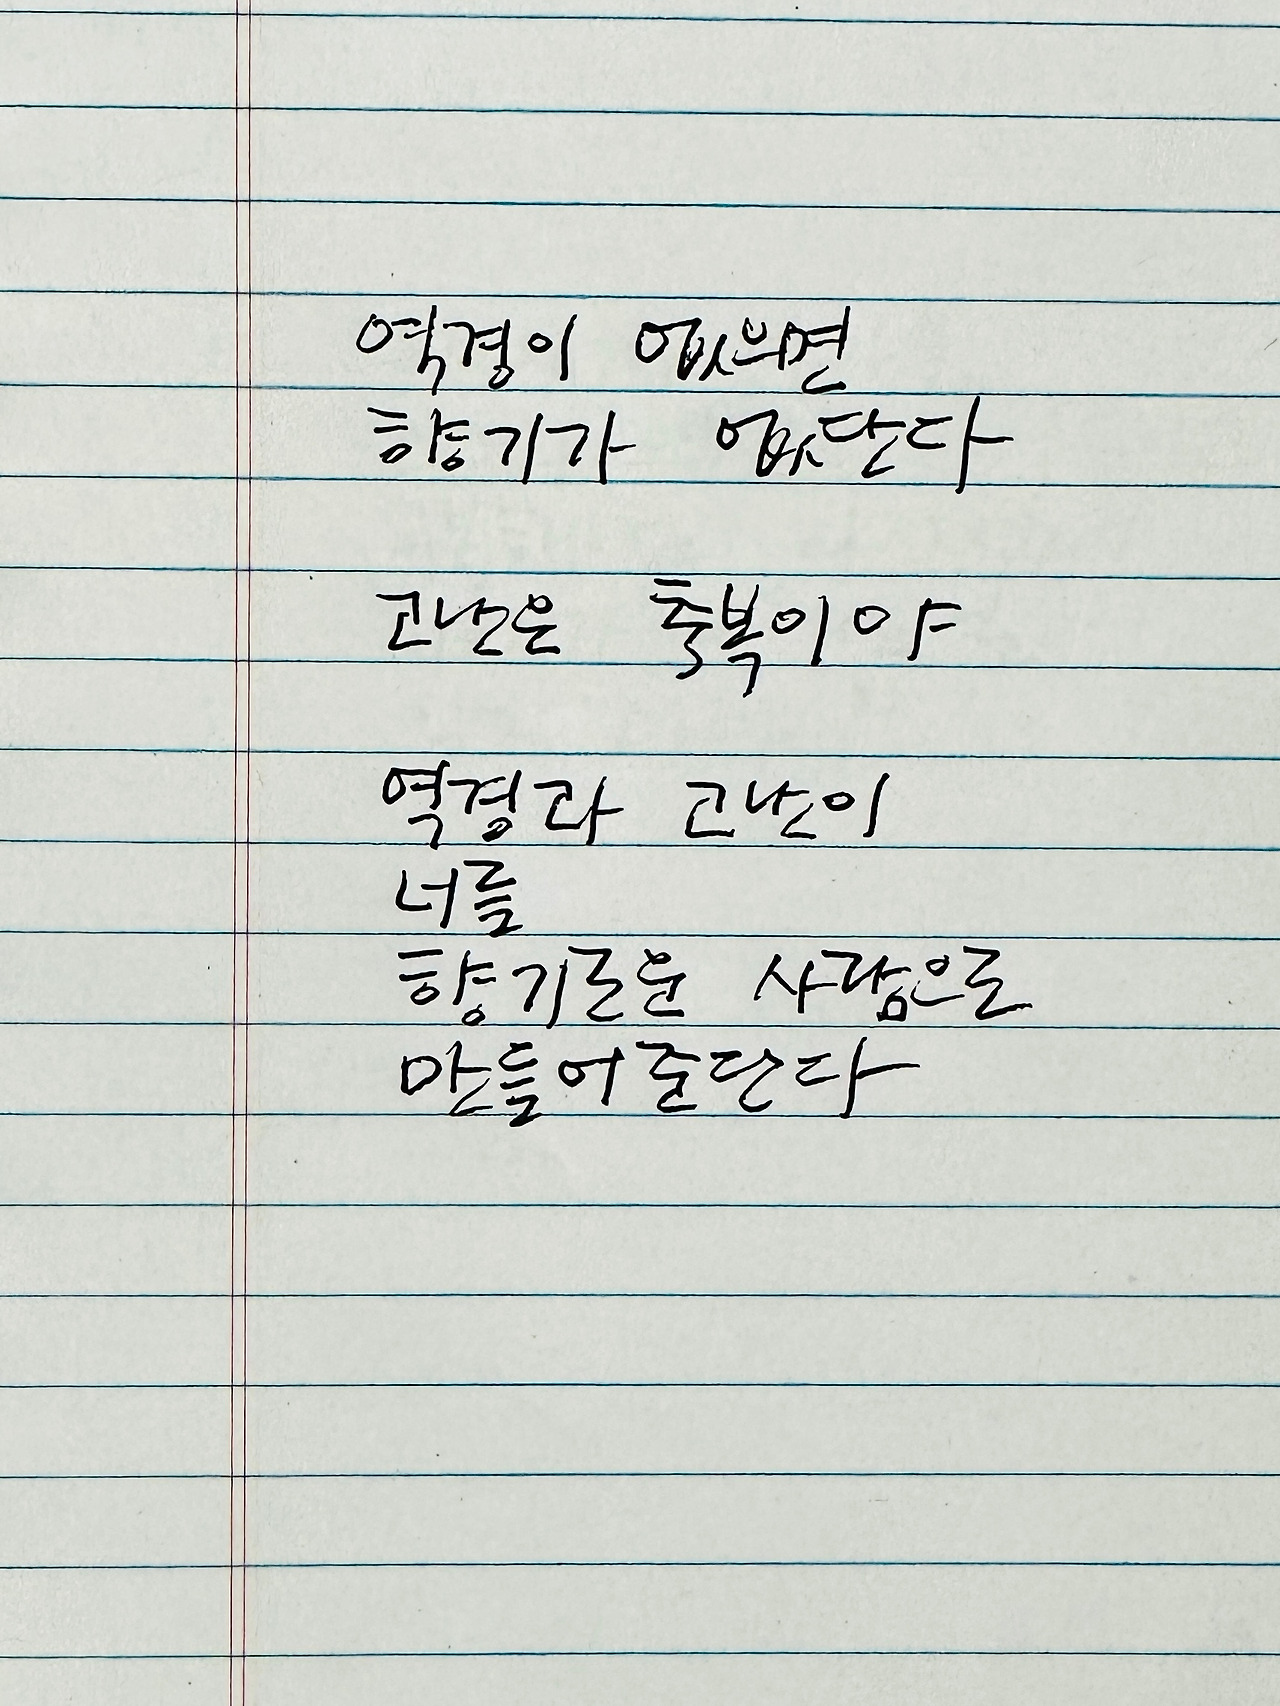 역경이 없으면
향기가 없단다
고난은 축복이야
역경과 고난이
너를
향기로운 사람으로
만들어준단다